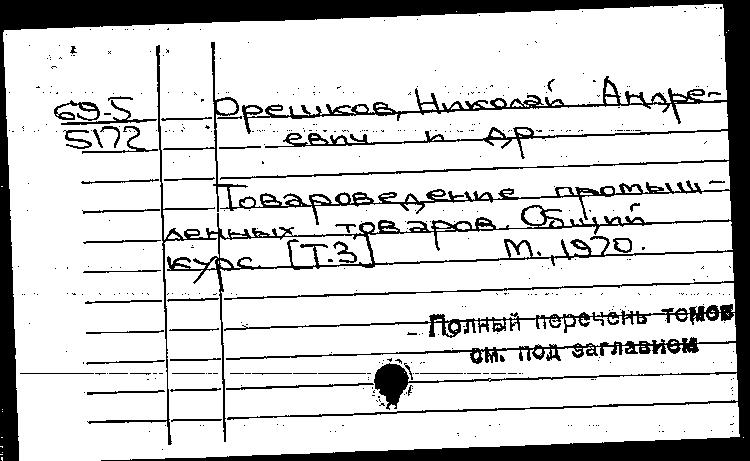 69-5
5172
Орешков, Николай Андре-
евич и др.
Товароведение промыш-
ленных товаров. Общий
курс. [Т.3] М., 1970.
Полный перечень томов
см. под заглавием